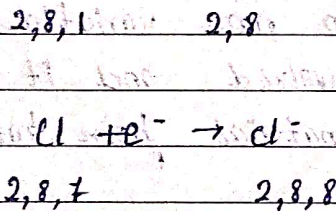 2,8,1 2,8
Cl + e⁻ → Cl⁻
2,8,7 2,8,8